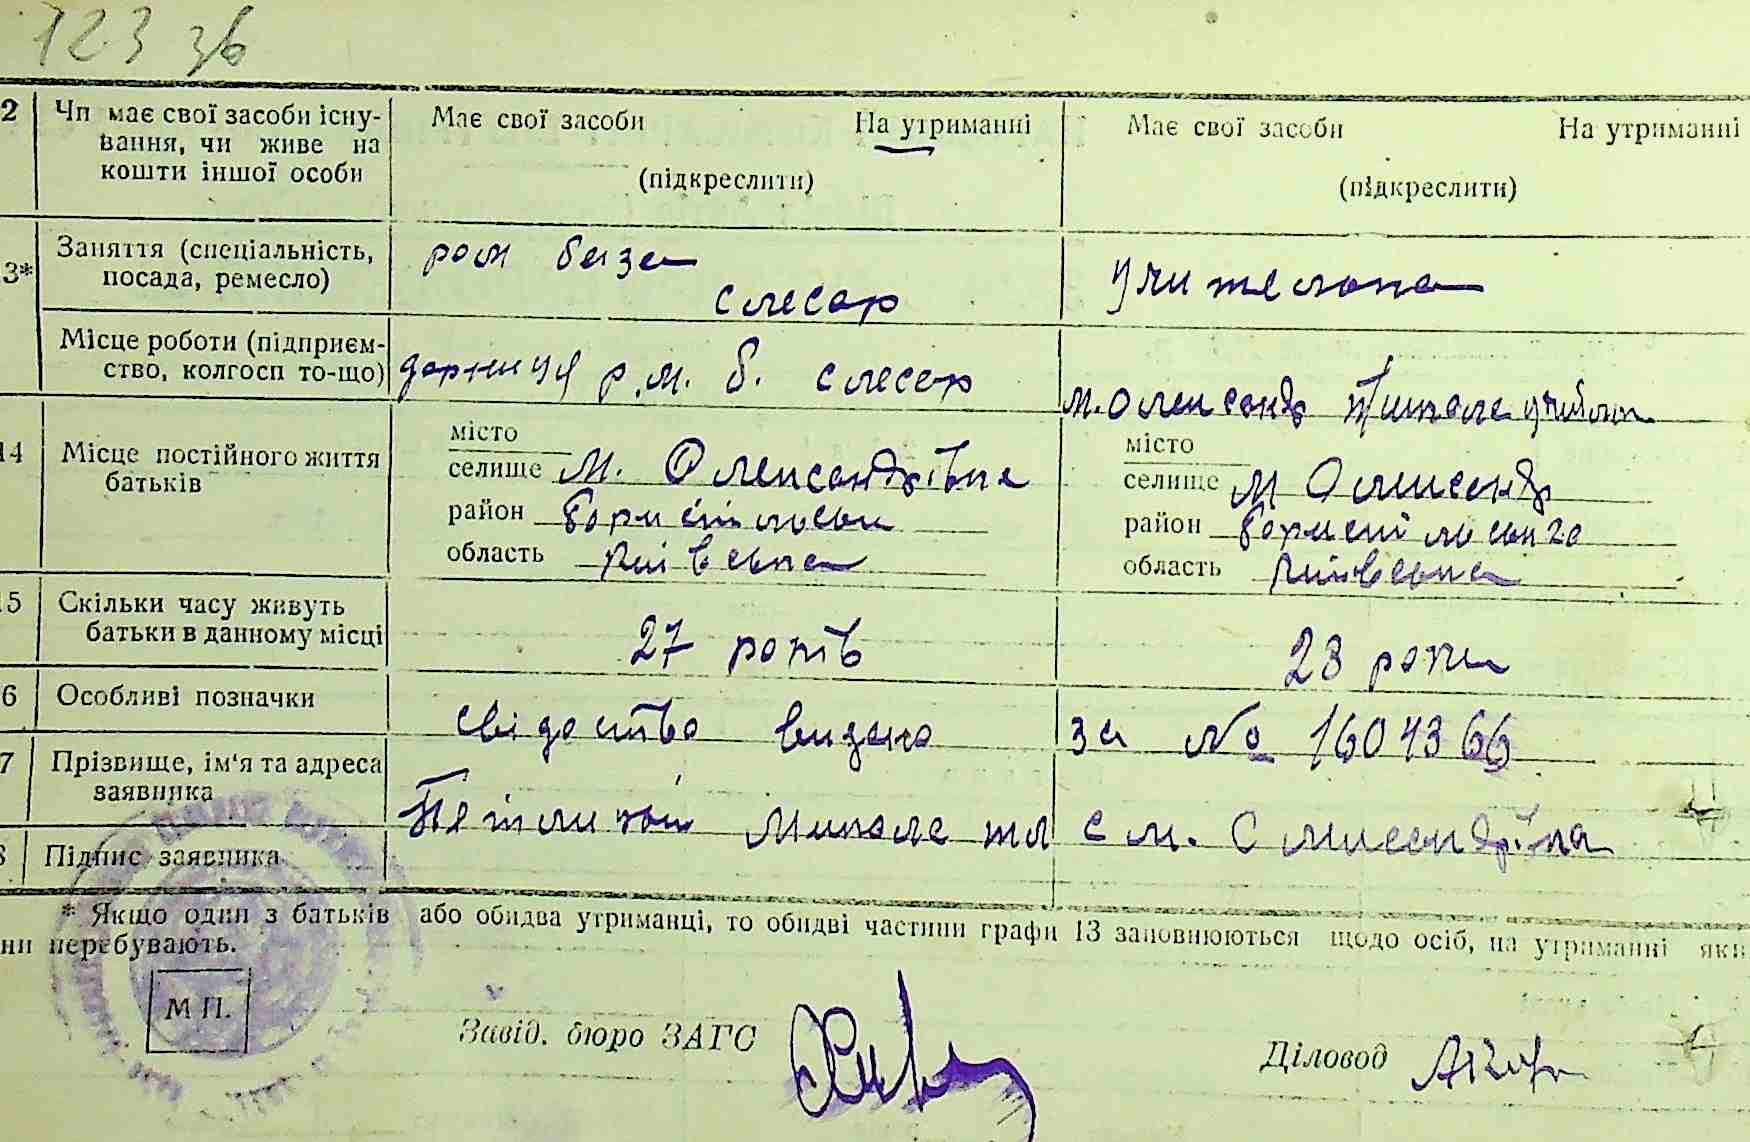 123 зв
2 Чи має свої засоби існу- Має свої засоби На утриманні Має свої засоби На утриманні
вання, чи живе на
кошти іншої особи (підкреслити) (підкреслити)
3* Заняття (спеціальність, рем база учителька
посада, ремесло) слесар
Місце роботи (підприєм- дарниця р.м.б. слесар м. Олександ
ство, колгосп то-що)
14 Місце постійного життя місто місто
батьків селище м. Олександрівка селище м Олександ
район район
область Київська область Київська
15 Скільки часу живуть 27 років 23 роки
батьки в данному місці
6 Особливі позначки свідоцтво видано за № 1604366
7 Прізвище, ім'я та адреса
заявника м. Олександрівка
8 Підпис заявника
* Якщо один з батьків або обидва утриманці, то обидві частини графи 13 заповнюються щодо осіб, на утриманні яки
ни перебувають.
М П.
Завід. бюро ЗАГС
Діловод